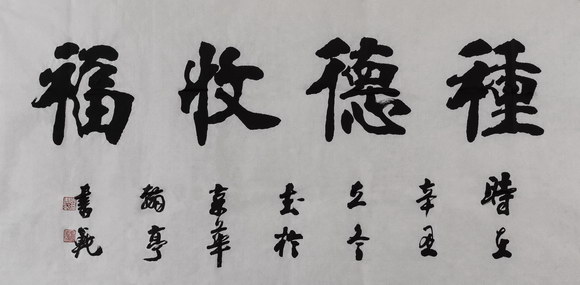 種德收福
時在
辛丑
立冬
書於
京華
翰亭
書